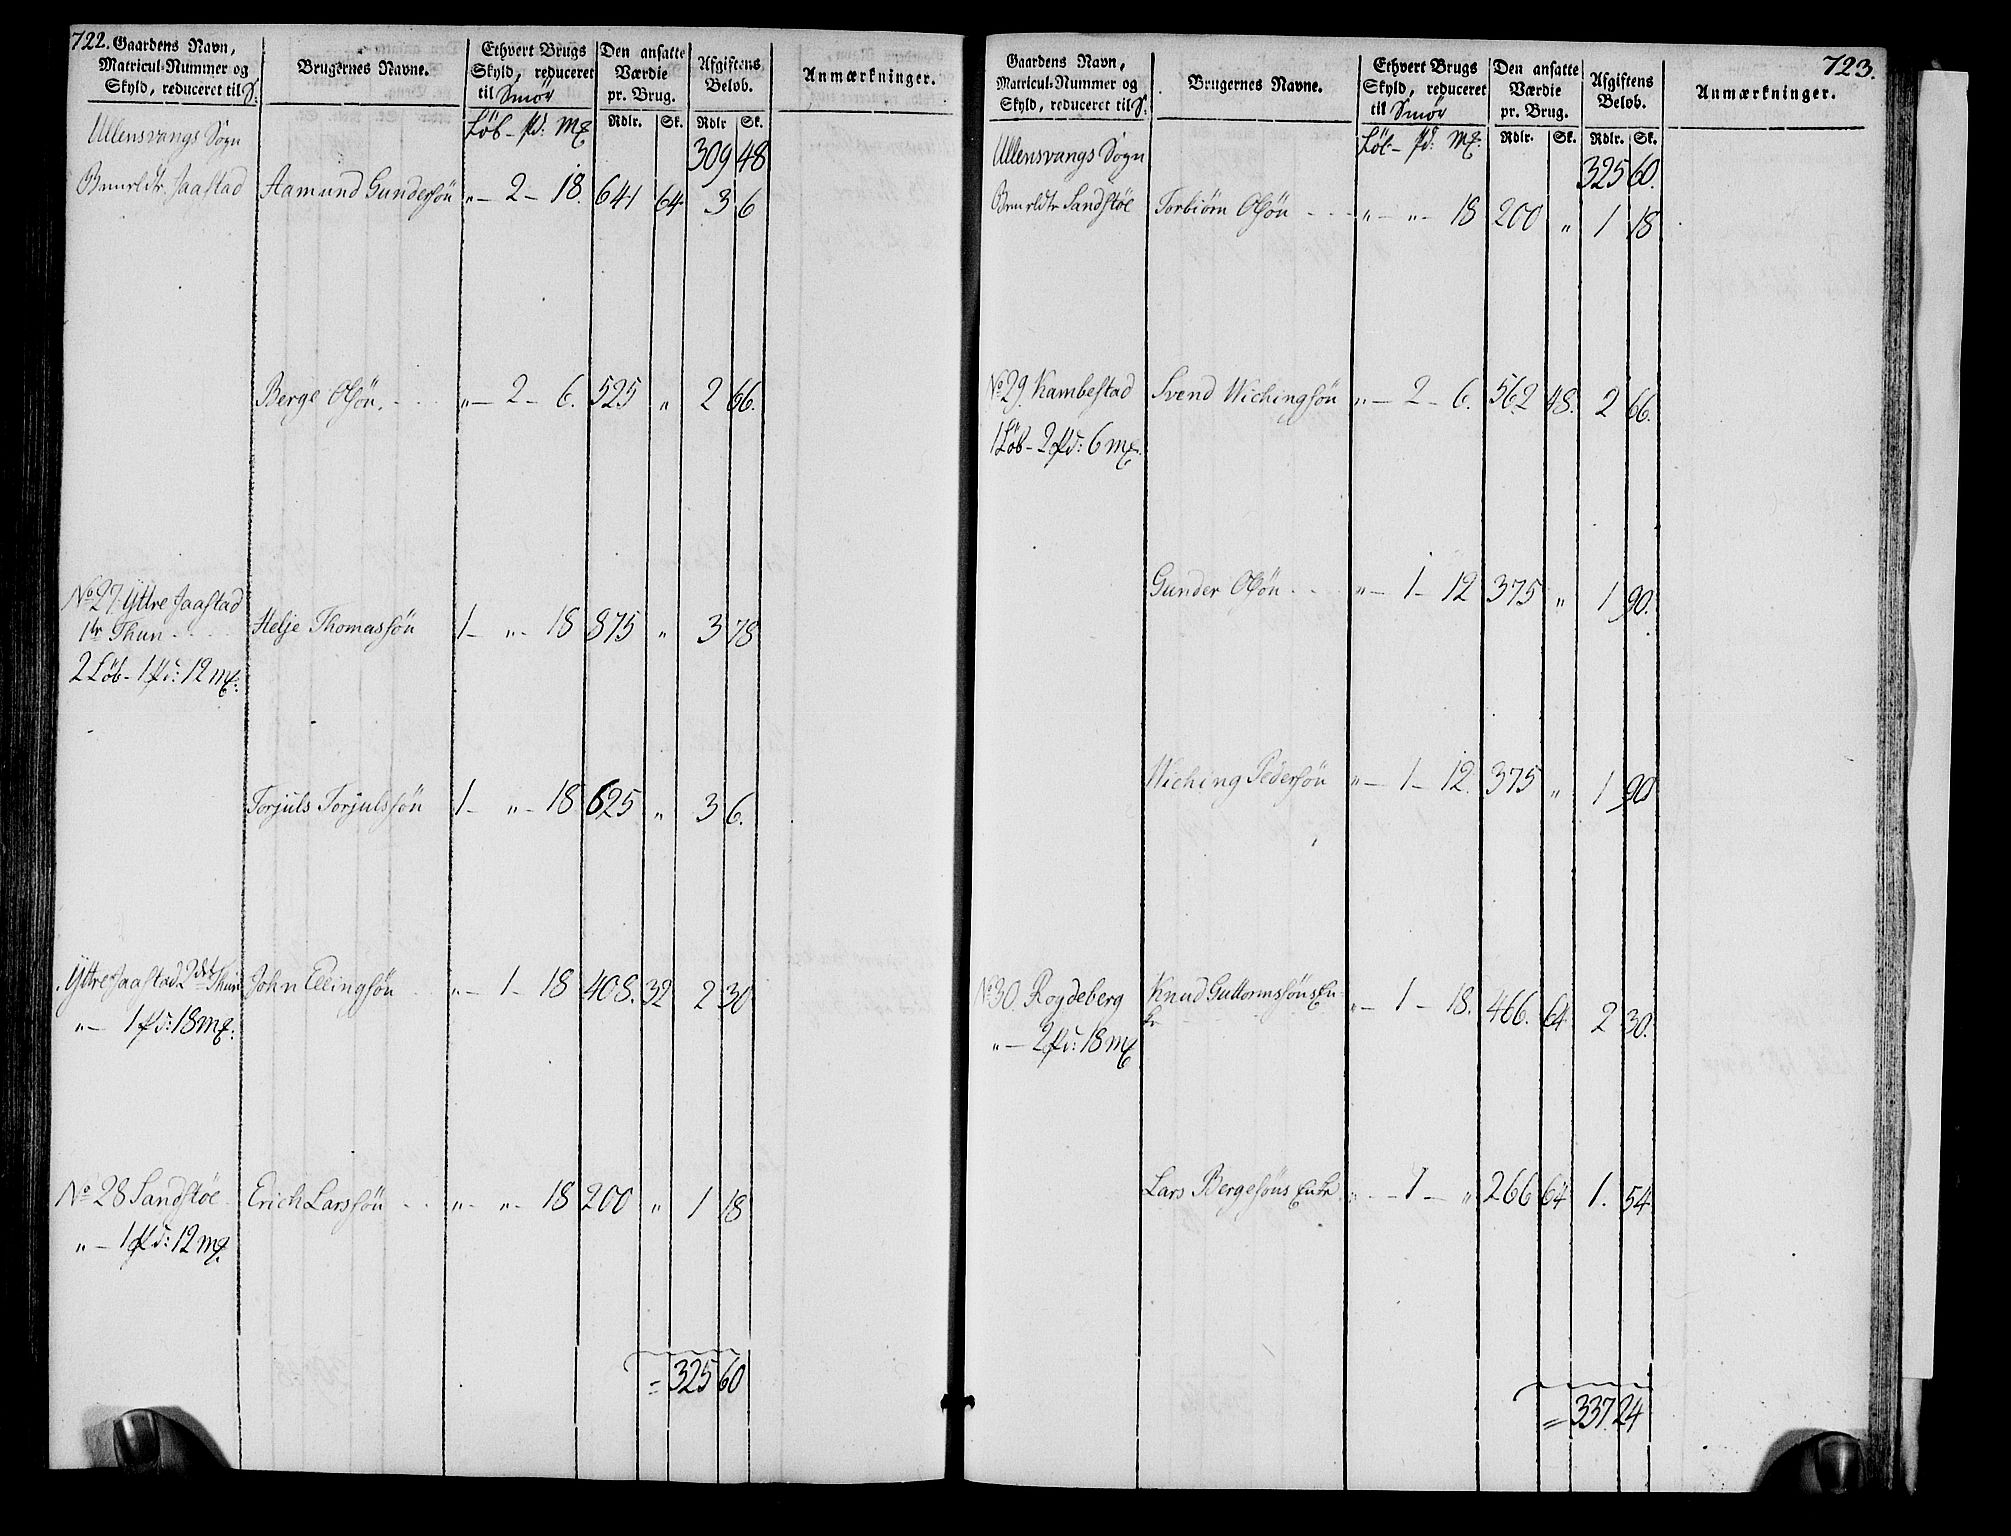 722. Gaardens Navn, Matricul-Nummer og Skyld, reduceret til S: | Brugernes Navne. | Ethvert Brugs Skyld, reduceret til Smør | Den ansatte Værdie pr. Brug. | Afgiftens Beløb. | Anmærkninger.
Löb - pd: m&. | Rdlr. | Sk. | Rdlr | Sk.
Ullensvangs Sogn 309 48
Jaastad Aamund Gundersön „ - 2 - 18. 641 64 3 6
Berge Olsön. „ - 2 - 6. 525 „ 2 66.
No 27. Yttre Jaastad
1te Thun Helje Thomassön 1 - „ - 18 875 „ 3 78
2 Löb - 1 pd: 12 m&:
Torjuls Torjulssön 1 - „ - 18 625 „ 3 6.
Yttre Jaastad 2det Thun John Ellingsön „ - 1 - 18 408. 32 2 30
„ - 1 pd: 18 m&.
No 28 Sandstöe Erich Larssön „ - „ - 18 200 „ 1 18
„ - 1 pd: 12 m&.
= 325 60
723.
Gaardens Navn, Matricul-Nummer og Skyld, reduceret til S: | Brugernes Navne. | Ethvert Brugs Skyld, reduceret til Smør | Den ansatte Værdie pr. Brug. | Afgiftens Beløb. | Anmærkninger.
Löb - pd: m&. | Rdlr. | Sk. | Rdlr. | Sk.
Ullensvangs Sogn 325 60.
Sandstöe Torbiörn Olsön „ - „ - 18 200 „ 1 18
No 29. Kambestad Svend Wichingsön „ - 2 - 6. 562 48. 2 66.
1 Löb - 2 pd: 6 m&.
Gunder Olsön „ - 1 - 12 375 „ 1 90.
Wiching Pedersön „ - 1 - 12. 375 „ 1 90
No 30. Roydeberg Knud Guttormssöns En-
ke „ - 1 - 18. 466. 64 2 30.
„ - 2 pd: 18 m&
Lars Bergesöns Enke „ - 1 - „ 266 64 1. 54.
= 337. 24